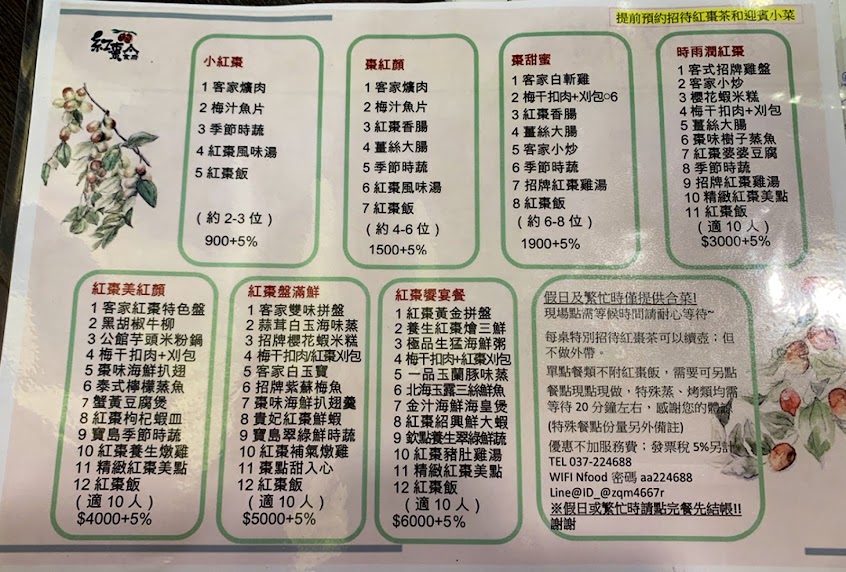 提前預約招待紅棗茶和迎賓小菜
紅棗食府
小紅棗
1 客家爌肉
2 梅汁魚片
3 季節時蔬
4 紅棗風味湯
5 紅棗飯
（約 2-3 位）
900+5%
棗紅顏
1 客家爌肉
2 梅汁魚片
3 紅棗香腸
4 薑絲大腸
5 季節時蔬
6 紅棗風味湯
7 紅棗飯
（約 4-6 位）
1500+5%
棗甜蜜
1 客家白斬雞
2 梅干扣肉+刈包○6
3 紅棗香腸
4 薑絲大腸
5 客家小炒
6 季節時蔬
7 招牌紅棗雞湯
8 紅棗飯
（約 6-8 位）
1900+5%
時雨潤紅棗
1 客式招牌雞盤
2 客家小炒
3 櫻花蝦米糕
4 梅干扣肉+刈包
5 薑絲大腸
6 棗味樹子蒸魚
7 紅棗婆婆豆腐
8 季節時蔬
9 招牌紅棗雞湯
10 精緻紅棗美點
11 紅棗飯
（適 10 人）
$3000+5%
紅棗美紅顏
1 客家紅棗特色盤
2 黑胡椒牛柳
3 公館芋頭米粉鍋
4 梅干扣肉+刈包
5 棗味海鮮扒翅
6 泰式檸檬蒸魚
7 蟹黃豆腐煲
8 紅棗枸杞蝦皿
9 寶島季節時蔬
10 紅棗養生燉雞
11 精緻紅棗美點
12 紅棗飯
（適 10 人）
$4000+5%
紅棗盤滿鮮
1 客家雙味拼盤
2 蒜茸白玉海味蒸
3 招牌櫻花蝦米糕
4 梅干扣肉/紅棗刈包
5 客家白玉寶
6 招牌紫蘇梅魚
7 棗味海鮮扒翅羹
8 貴妃紅棗鮮蝦
9 寶島翠綠鮮時蔬
10 紅棗補氣燉雞
11 棗點甜入心
12 紅棗飯
（適 10 人）
$5000+5%
紅棗饗宴餐
1 紅棗黃金拼盤
2 養生紅棗燴三鮮
3 極品生猛海鮮粥
4 梅干扣肉+紅棗刈包
5 一品玉蘭豚味蒸
6 北海玉露三絲鮮魚
7 金汁海鮮海皇煲
8 紅棗紹興鮮大蝦
9 飲點養生翠綠鮮蔬
10 紅棗豬肚雞湯
11 精緻紅棗美點
12 紅棗飯
（適 10 人）
$6000+5%
假日及繁忙時僅提供合菜!
現場點需等候時間請耐心等待~
每桌特別招待紅棗茶可以續壺；但
不做外帶。
單點餐類不附紅棗飯，需要可另點
餐點現點現做，特殊蒸、烤類均需
等待 20 分鐘左右，感謝您的體諒
(特殊餐點份量另外備註)
優惠不加服務費；發票稅 5%另計
TEL 037-224688
WIFI Nfood 密碼 aa224688
Line@ID_@zqm4667r
※假日或繁忙時請點完餐先結帳!!
謝謝